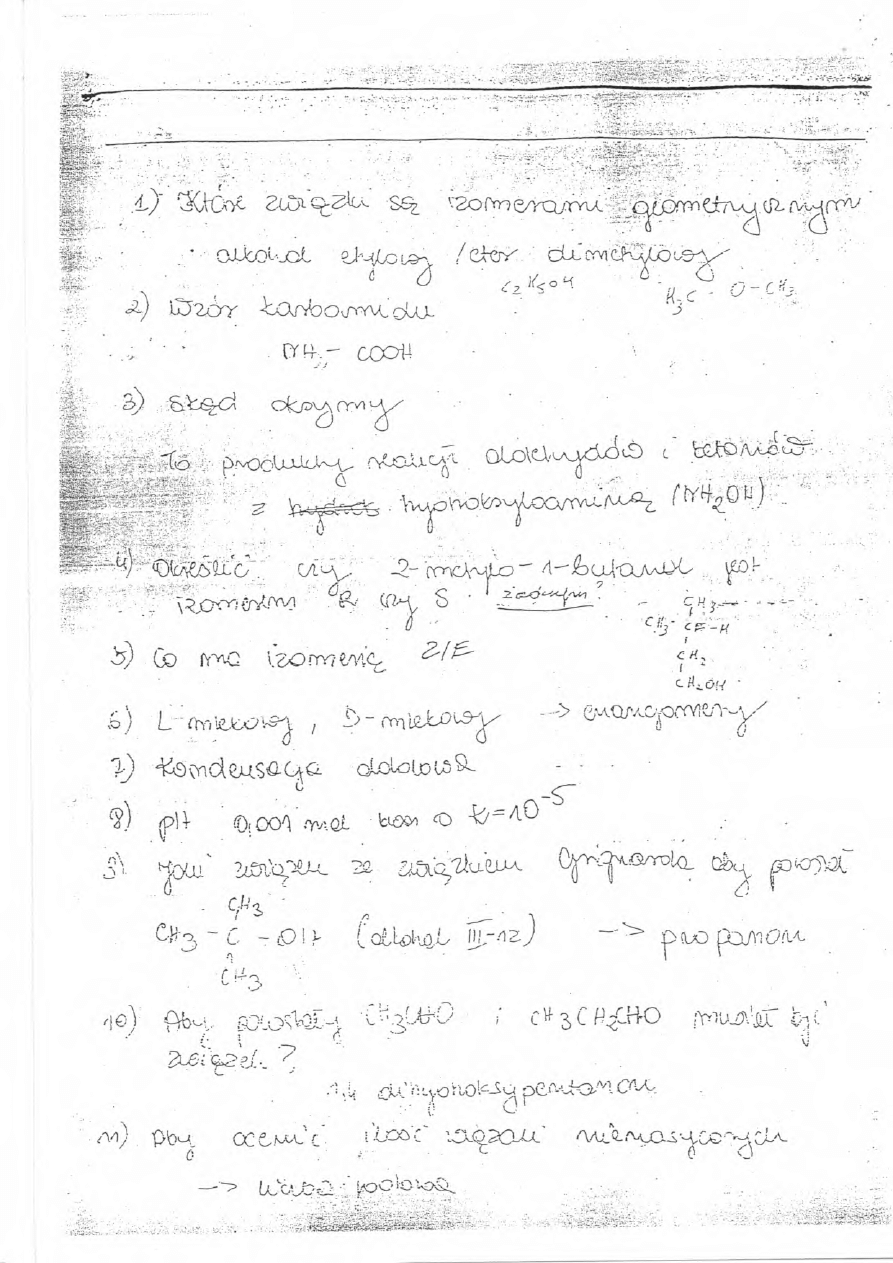 1) Które związki są izomerami geometrycznymi
alkohol etylowy / eter dimetylowy
C2H5OH H3C - O-CH3
2) Wzór karbamidu
NH2 - COOH
3) Skąd oksymy
To produkty reakcji aldehydów i ketonów
z hydroksyloaminą (NH2OH)
4) Określić czy 2-metylo-1-butanol jest
izomerem R czy S
CH3
CH3- CH-H
CH2
CH2OH
5) Co ma izomerię Z/E
6) L-mlekowy, D-mlekowy -> enancjomery
7) Kondensacja aldolowa
8) pH 0,001 mol kwas o K=10-5
9) Jaki związek ze związkiem Grignarda aby powstał
CH3
CH3 - C - OH (alkohol III-rz) -> propanon
CH3
10) Aby powstały CH3CHO i CH3CH2CHO musiał być
związek?
1,4 dihydroksypentanon
11) Aby ocenić ilość wiązań nienasyconych
-> liczba jodowa